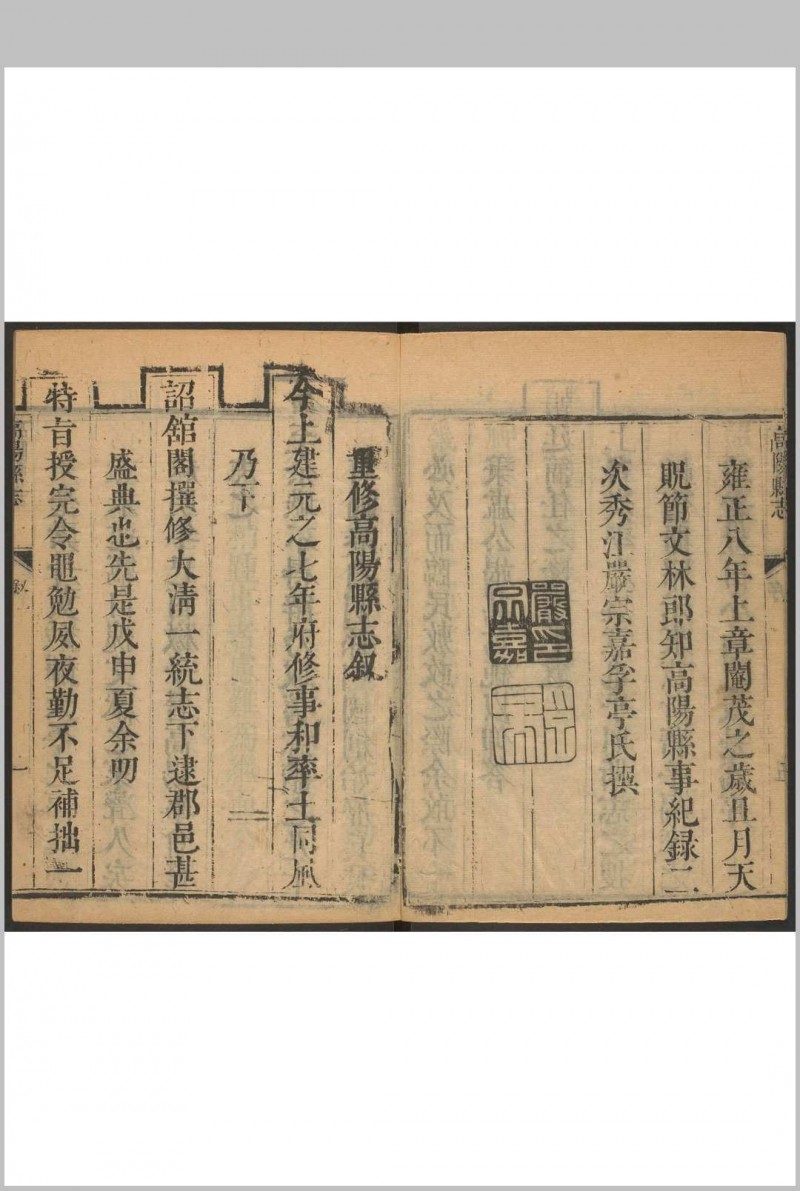 高陽縣志
雍正八年上章閹茂之歲丑月天
貺節文林郎知高陽縣事紀録二
次秀江嚴宗嘉李亭氏撰
嚴印宗嘉
重修高陽縣志叙
今上建元之七年府修事和率土同風
乃下
詔舘閣撰修大清一統志下逮郡邑甚
盛典也先是戊申夏余叨
特㫖授完令黽勉夙夜勤不足補拙一
高陽縣志
叙
一